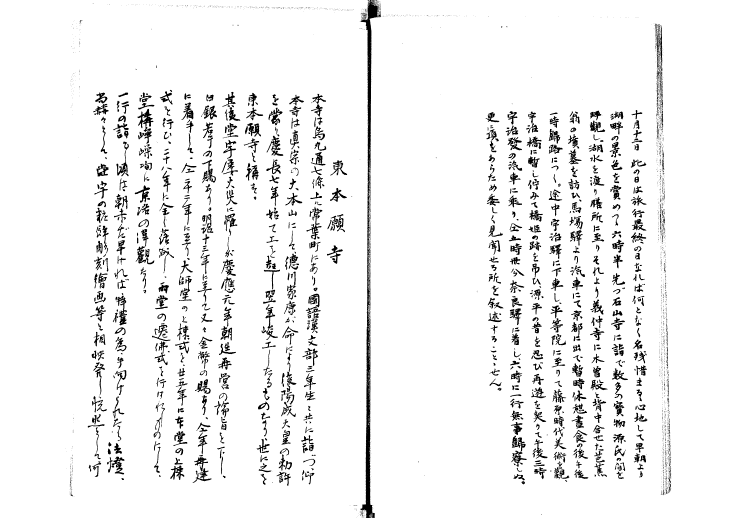 十月十三日 此の日は旅行最終の日なれば何となく名残惜まるゝ心地して早朝より
湖畔の景色を賞めて六時半先づ石山寺に詣で数多の寳物源氏の間を
拝観し湖水を渡り膳所に至りそれより義仲寺に木曽殿と背中合せた芭蕉
翁の墳墓を訪ひ馬場驛より汽車にて京都に出で暫時休憩晝食の後午後
一時歸路につく。途中宇治驛に下車し平等院に至りて藤原時代美術を観、
宇治橋に暫し佇みて橋姫の跡を弔ひ源平の昔を忍び再遊を契りて午後三時
宇治發の汽車に乘り、仝五時廿分奈良驛に着し、六時に一行無事歸寮しぬ。
更に項をあらため委しく見聞せる所を叙述することゝせん。
東本願寺
本寺は烏丸通七條上ル常葉町にあり。國語漢文部三年生と共に詣づ、仰
本寺は真宗の大本山にして徳川家康が命により後陽成天皇の勅許
を蒙り慶長七年始て工を起し翌年竣工したるものなり世に之を
東本願寺と稱す。
其後堂宇屡火災に罹りしが慶應元年朝廷再営の綸旨を下し、
白銀若干の下賜あり。明治十三年に至りて又々金幣の賜あり、仝年再建
に着手して、仝二十二年に至り大師堂の上棟式を廿五年に本堂の上棟
式を行ひ、二十八年に全く落成し両堂の遷佛式を行はれしものにして、
堂構崢嶸洵に京洛の偉觀たり。
一行の詣る頃は朝未だ早ければ特權の為め開けられたる法燈、
尚赫々として、堂宇の粧飾彫刻繪画等と相映發し恍然として何